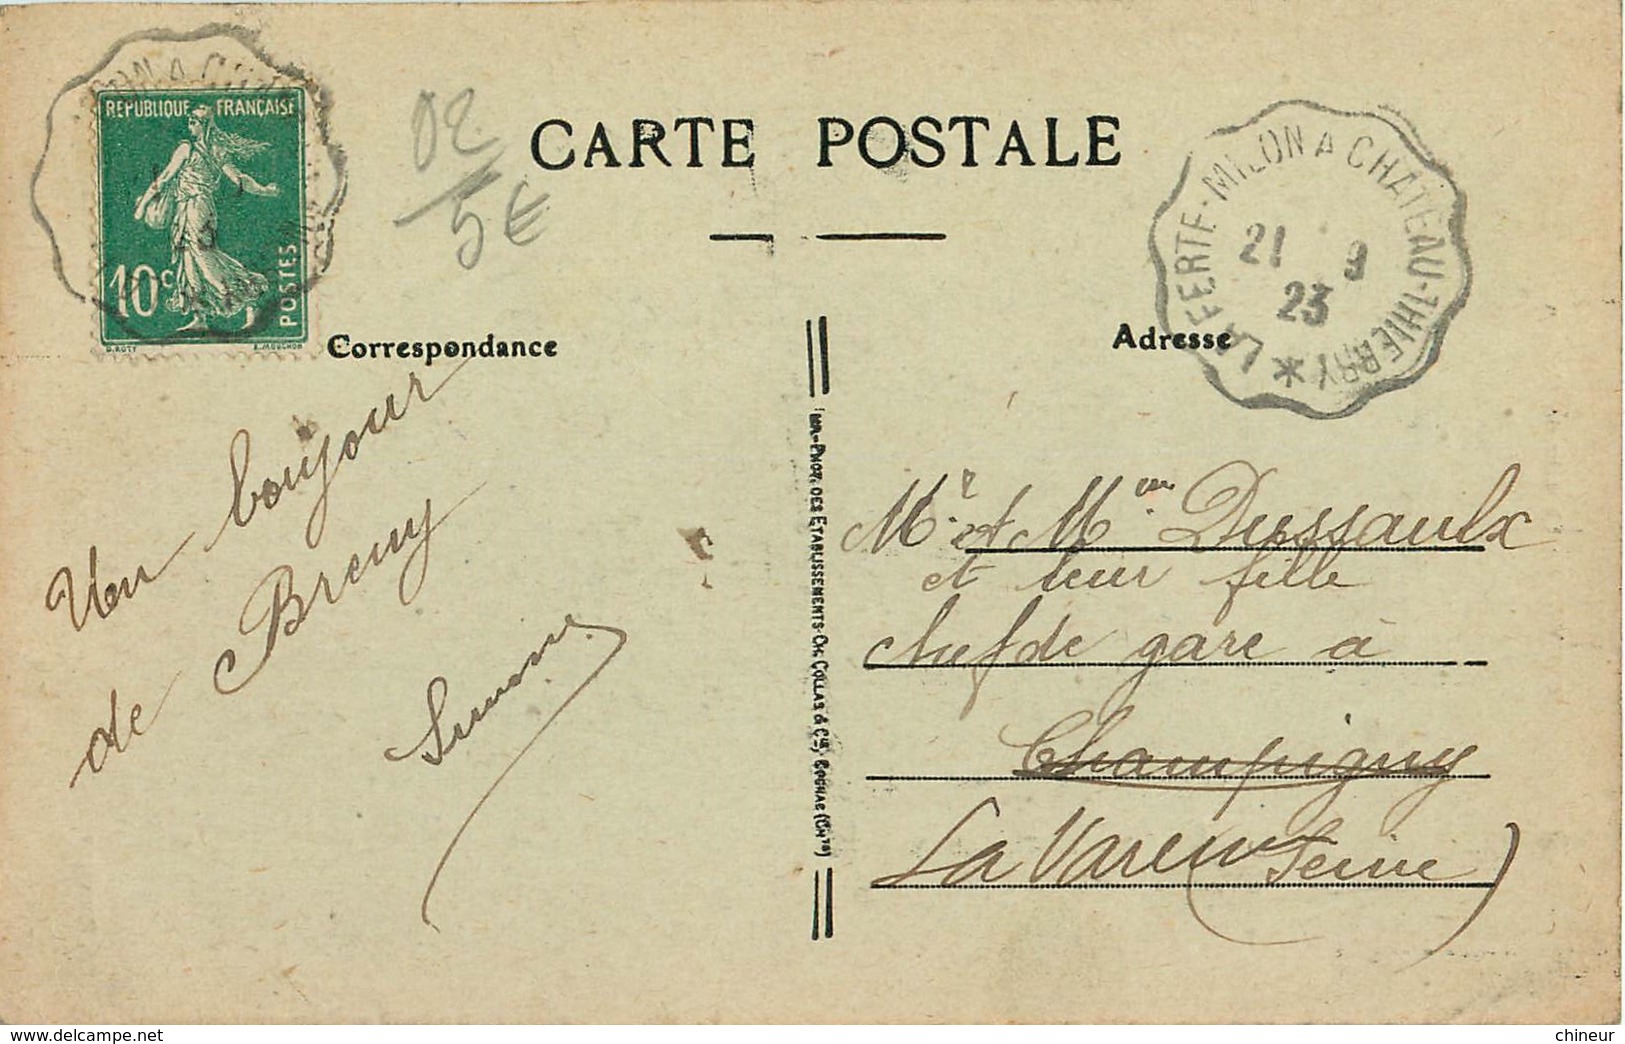 LA FERTE-MILON A CHATEAU-THIERRY *
21 9
23
REPUBLIQUE FRANÇAISE
10c
POSTES
O. ROTY
E. MOUCHON
02
5€
CARTE POSTALE
Correspondance
Adresse
Un bonjour
de Breny
Simone
IMP.-PHOT. DES ETABLISSEMENTS CH. COLLAS & Cie, COGNAC (Chte)
Mr et Mme Dussaulx
et leur fille
chef de gare à
Champigny
La Varenne (Seine)
www.delcampe.net
chineur